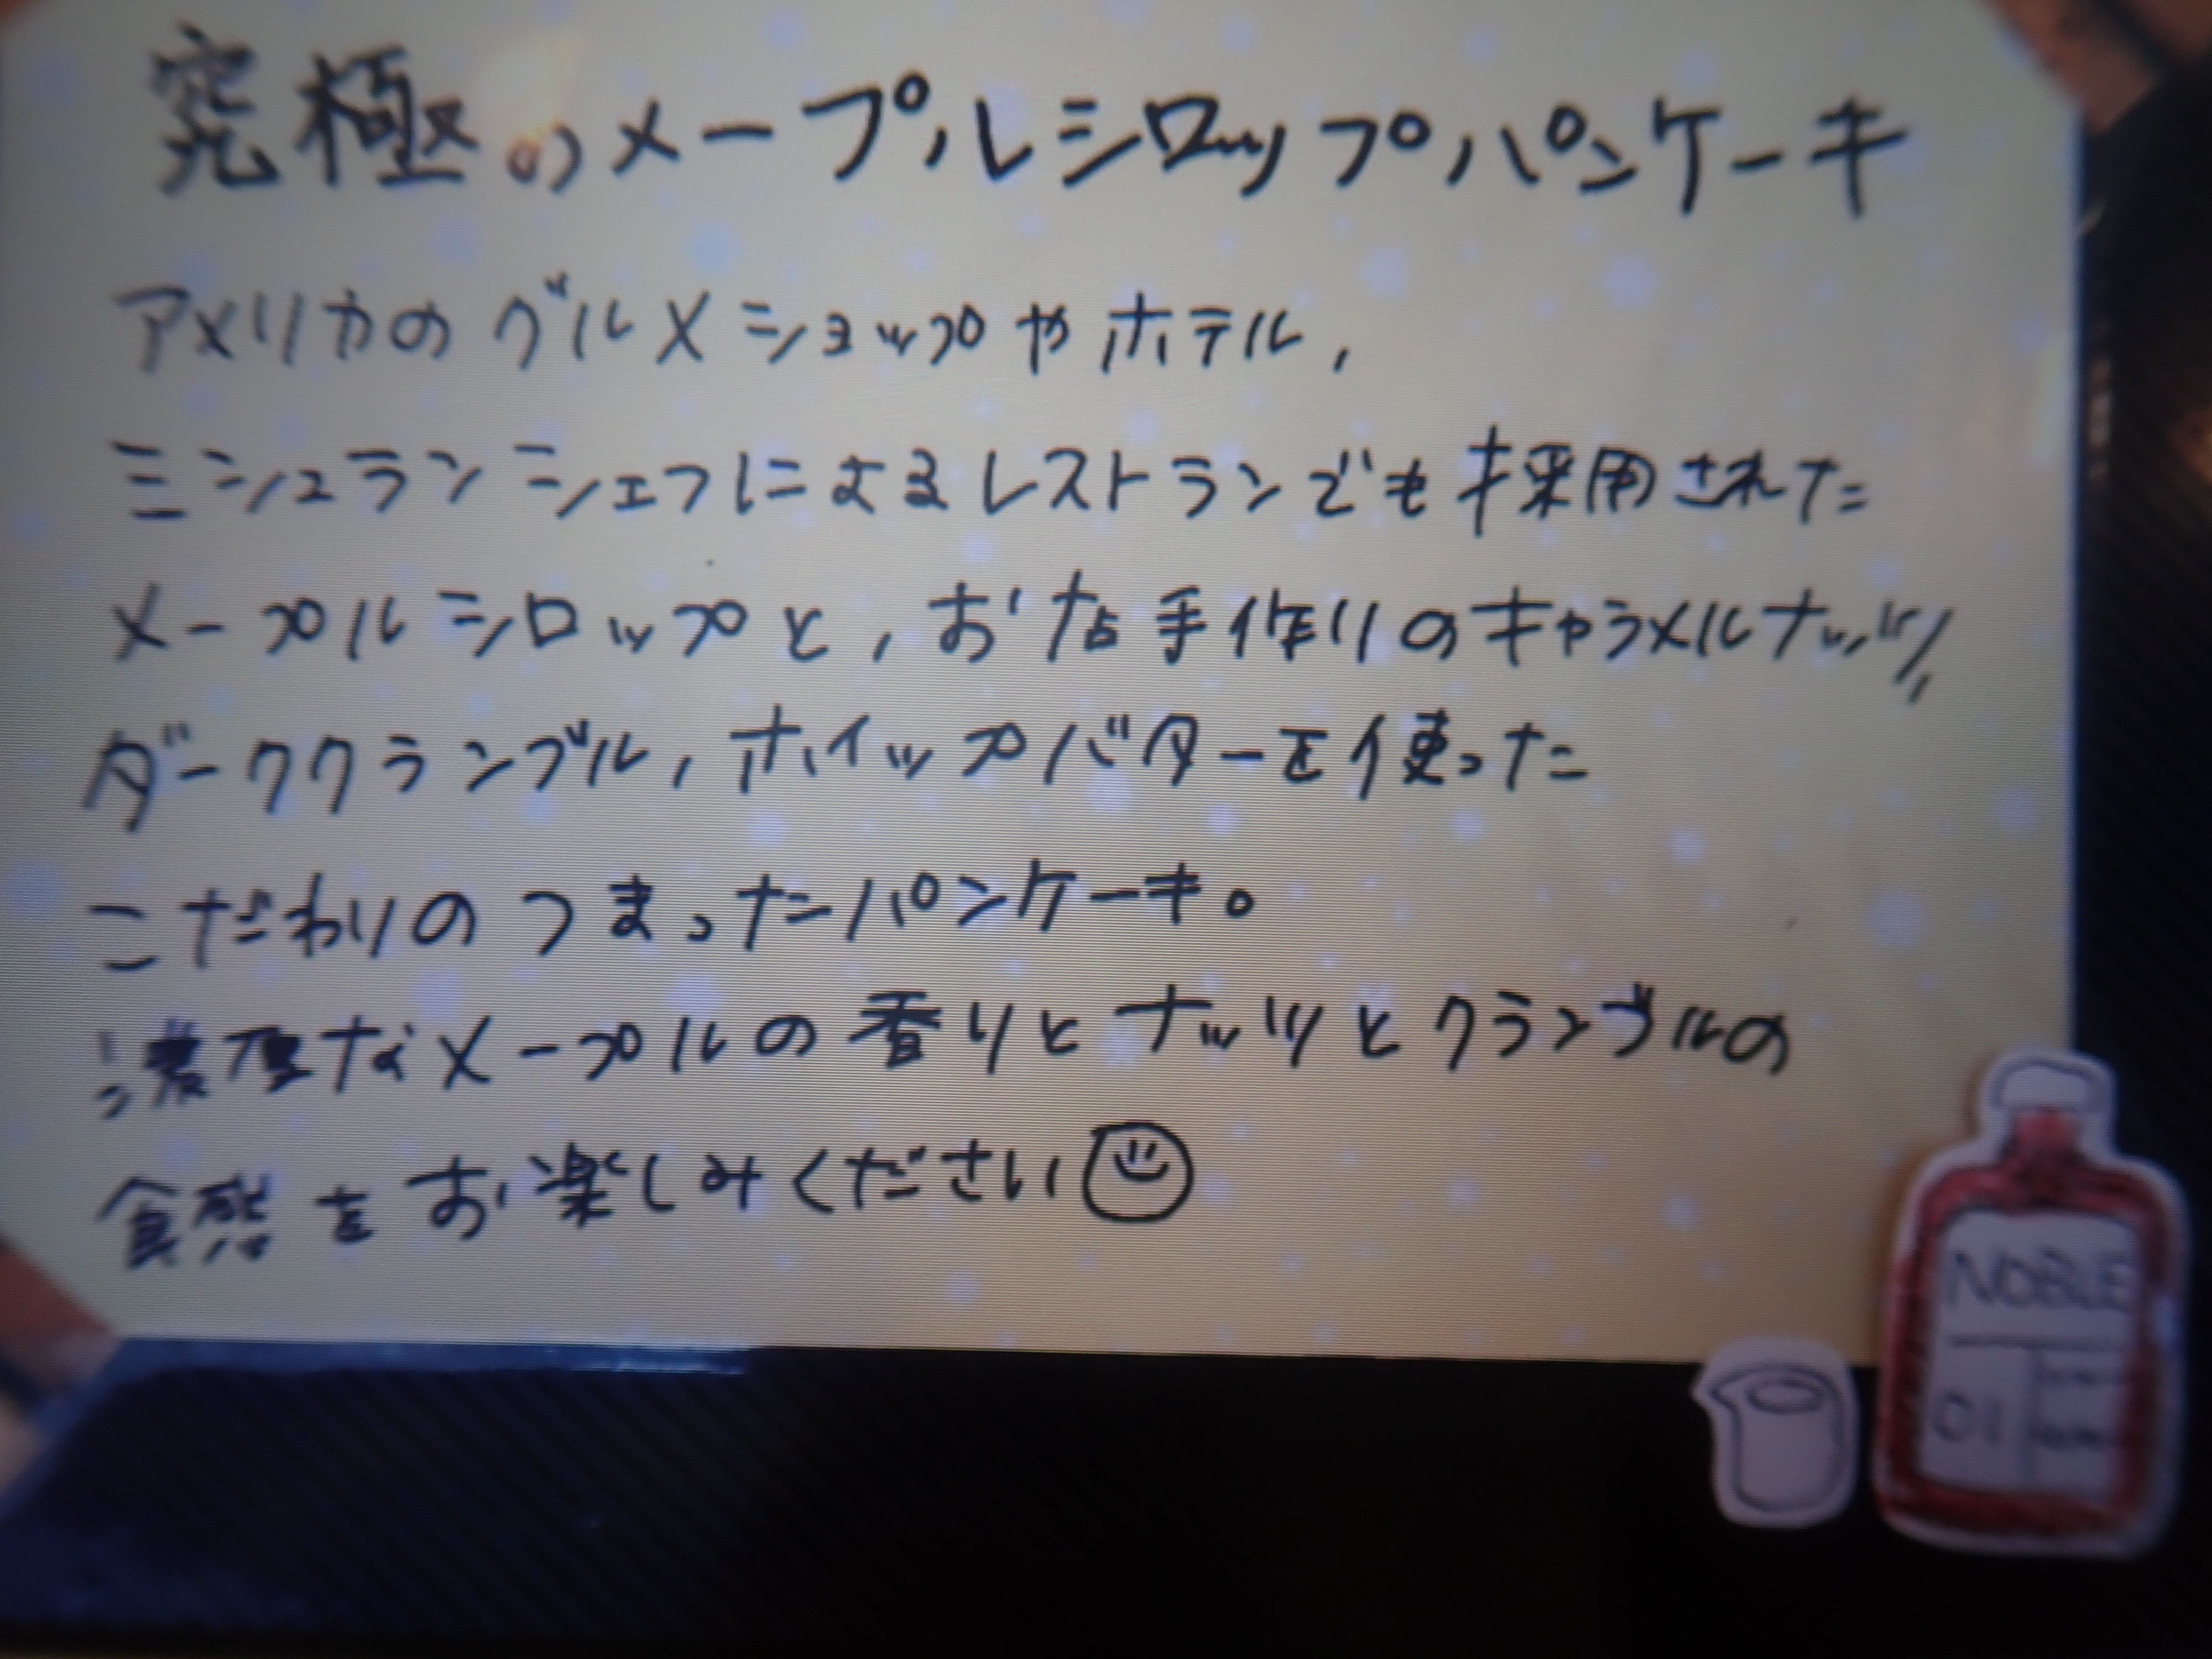 究極のメープルシロップパンケーキ
アメリカのグルメショップやホテル、
ミシュランシェフによるレストランでも採用された
メープルシロップと、お店手作りのキャラメルナッツ、
ダーククランブル、ホイップバターを使った
こだわりのつまったパンケーキ。
濃厚なメープルの香りとナッツとクランブルの
食感をお楽しみください
NOBLE
01